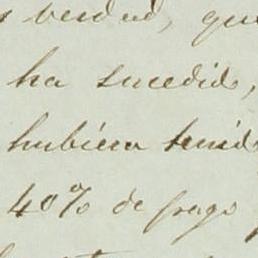 verdad, que
ha sucedido,
hubiera tenid
40% de pago